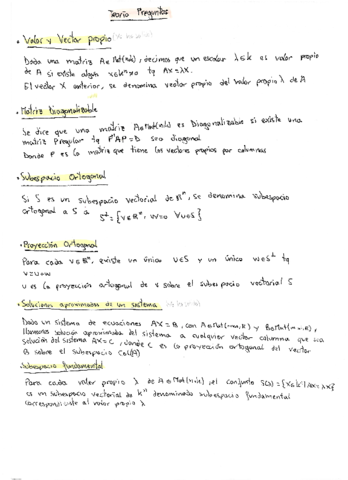 Teoría Preguntas
• Valor y Vector propio
Dada una matriz A∈Mat(nxk), decimos que un escalar λ∈k es valor propio
de A si existe algún x∈kⁿ≠0 tq AX=λX.
El vector X anterior, se denomina vector propio del valor propio λ de A
• Matriz Diagonalizable
Se dice que una matriz A∈Mat(nxk) es Diagonalizable si existe una
matriz P regular tq P⁻¹AP=D sea diagonal
Donde P es la matriz que tiene los vectores propios por columnas
• Subespacio Ortogonal
Si S es un subespacio vectorial de Rⁿ, se denomina subespacio
ortogonal a S a S⊥={v∈Rⁿ, v·u=0 ∀u∈S}
• Proyección Ortogonal
Para cada v∈Rⁿ, existe un único u∈S y un único w∈S⊥ tq
v=u+w
u es la proyección ortogonal de v sobre el subespacio vectorial S
• Soluciones aproximadas de un sistema
Dado un sistema de ecuaciones AX=B, con A∈Mat y B∈Mat
llamamos solución aproximada del sistema a cualquier vector columna que sea
solución del sistema AX=C, donde C es la proyección ortogonal del vector
B sobre el subespacio Col(A)
• Subespacio fundamental
Para cada valor propio λ de A∈Mat(nxn), el conjunto S(λ)={X∈kⁿ/AX=λX}
es un subespacio vectorial de kⁿ denominado subespacio fundamental
correspondiente al valor propio λ